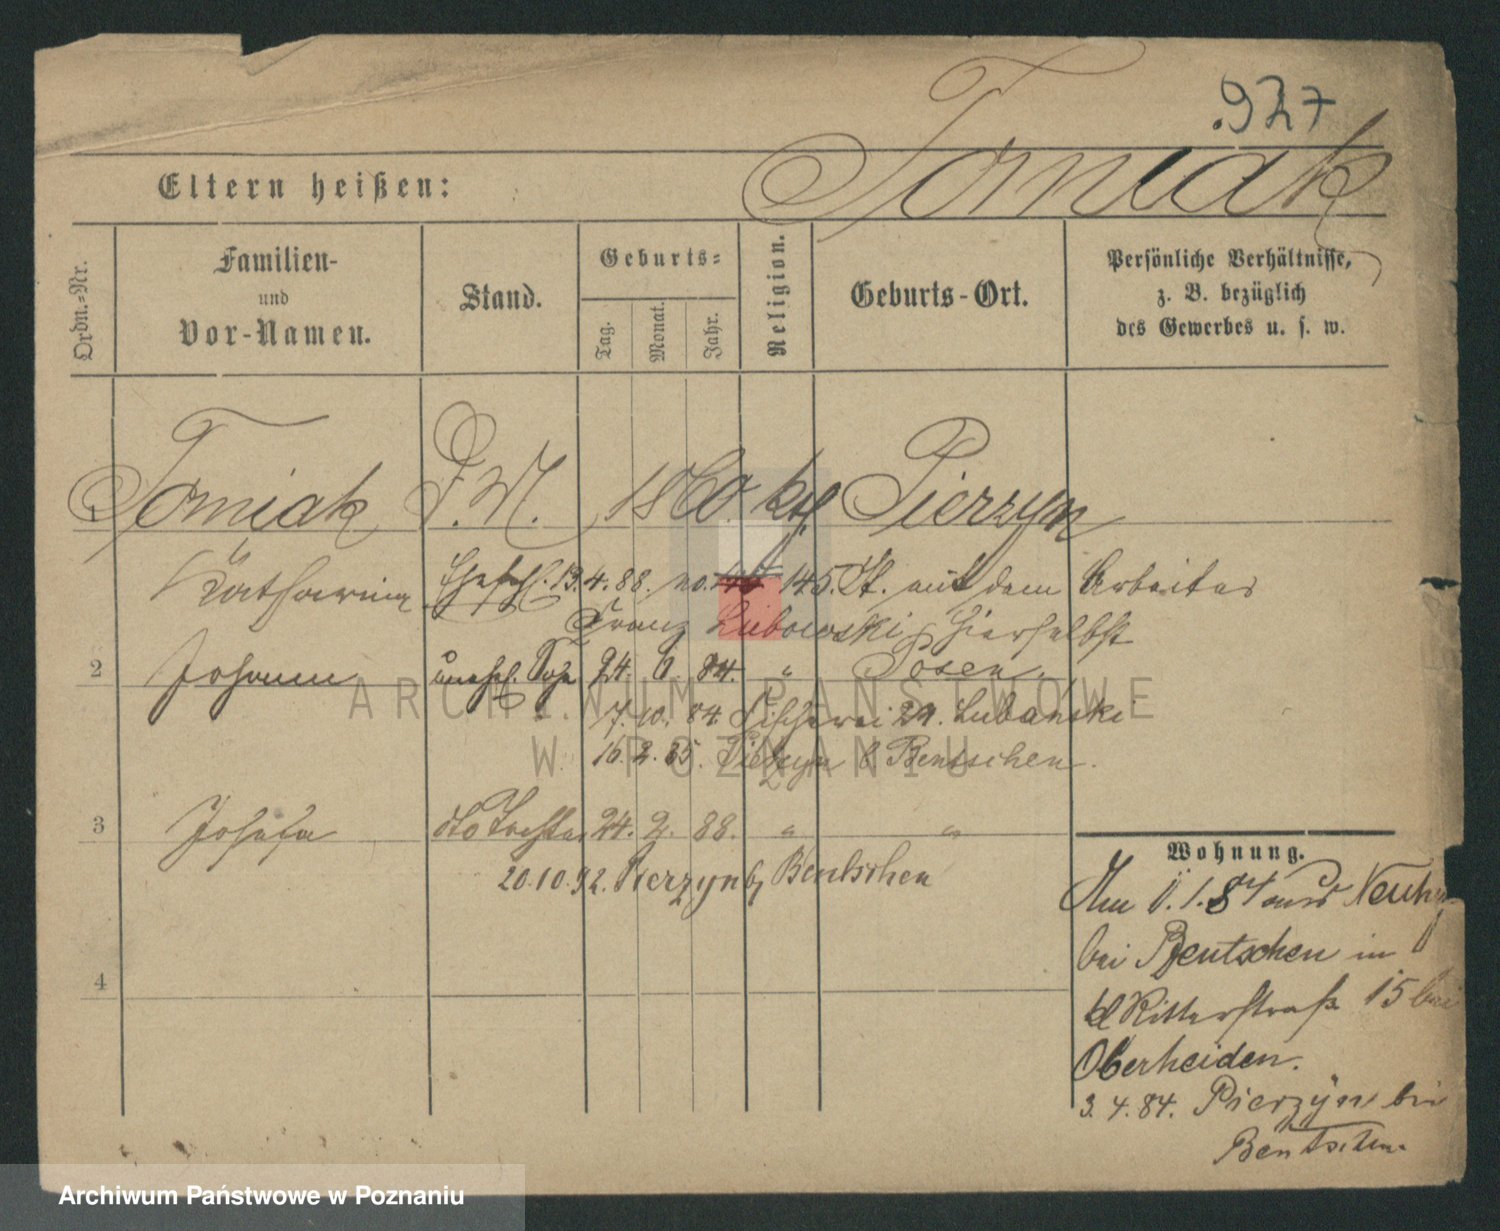 .927
Tomiak
Eltern heißen:
Ordn.-Nr.
Familien-
und
Vor-Namen.
Stand.
Geburts-
Tag.
Monat.
Jahr.
Religion.
Geburts-Ort.
Persönliche Verhältnisse,
z. B. bezüglich
des Gewerbes u. s. w.
1 Tomiak D.M. 1860 kth Pierzyn
Katharina Ehefr. 13.4.88. no. 145. St. mit dem Arbeiter
Franz Lubowski hierselbst
2 Johann unehel. Sohn 24. 6. 84. " Posen
7. 10. 84. Fischerei 29. Lubanski
16. 2. 85. Pierzyn b Bentschen.
3 Josefa dto Tochter 24. 2. 88. " "
20.10.92. Pierzyn b/ Bentschen
4
Wohnung.
1. 87 aus
bei Bentschen in
Ritterstraße 15 bei
Oberheiden.
3. 4. 84. Pierzyn bei
Bentschen.
ARCHIWUM PAŃSTWOWE
W POZNANIU
Archiwum Państwowe w Poznaniu